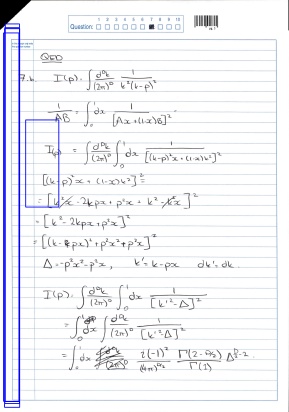 1 2 3 4 5 6 7 8 9 10
Question:
QED
I(p) = ∫ d^D k/(2π)^D 1/(k²(k-p)²)
1/AB = ∫₀¹ dx 1/[Ax + (1-x)B]²
I(p) = ∫ d^D k/(2π)^D ∫₀¹ dx 1/[(k-p)²x + (1-x)k²]²
[(k-p)²x + (1-x)k²]² =
= [k²x - 2kpx + p²x + k² - k²x]²
= [k² - 2kpx + p²x]²
= [(k - px)² + p²x² + p²x]²
Δ = -p²x² - p²x, k' = k - px dk' = dk
I(p) = ∫ d^D k/(2π)^D ∫₀¹ dx 1/[k'² - Δ]²
= ∫₀¹ dx ∫ d^D k/(2π)^D 1/[k'² - Δ]²
= ∫₀¹ dx i(-1)²/(4π)^(D/2) Γ(2 - D/2)/Γ(2) Δ^(D/2 - 2)